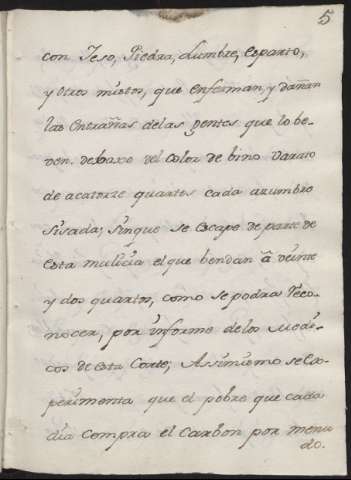 5
con Ieso, Piedra, Lumbre, esparto,
y otros mistos, que enferman, y dañan
las entrañas de las gentes que lo be-
ven. debaxo del Color de bino varato
de acatorze quartos cada azumbre
sisada; sinque se escape de parte de
esta malicia el que bendan â veinte
y dos quartos, como se podra reco-
nocer, por informe de los Medi-
cos de esta Corte; Assimismo se ex-
perimenta que el pobre que cada
dia compra el Carbon por menu
do.